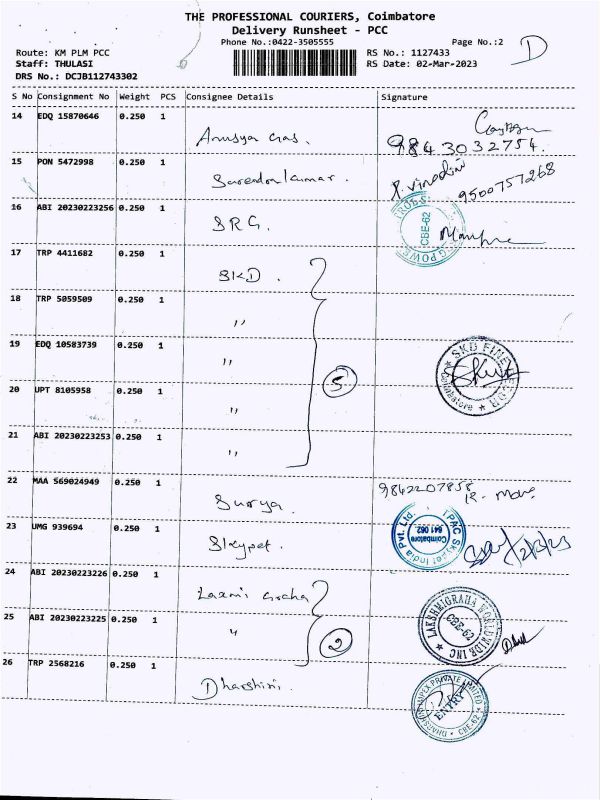 THE PROFESSIONAL COURIERS, Coimbatore
Delivery Runsheet - PCC
Phone No.:0422-3505555
Page No.:2 D
Route: KM PLM PCC
RS No.: 1127433
Staff: THULASI
RS Date: 02-Mar-2023
DRS No.: DCJB112743302
S No Consignment No Weight PCS Consignee Details Signature
14 EDQ 15870646 0.250 1
Anusya Gas.
9843032754.
15 PON 5472998 0.250 1
Surendar kumar. R. vinodini
9500757268
16 ABI 20230223256 0.250 1
SRG.
CBE-62
17 TRP 4411682 0.250 1
SKD.
18 TRP 5059509 0.250 1
"
19 EDQ 10583739 0.250 1
"
SKD FINE
Coimbatore
5
20 UPT 8105958 0.250 1
"
21 ABI 20230223253 0.250 1
"
22 MAA 569024949 0.250 1
9842207858
Surya.
23 UMG 939694 0.250 1
Skypet.
India Pvt. Ltd.
641 062
Coimbatore
2/3/23
24 ABI 20230223226 0.250 1
Laxmi Graha
LAKSHMIGRAHA WORLDWIDE INC
CBE-62
25 ABI 20230223225 0.250 1
"
2
26 TRP 2568216 0.250 1
Dharshini.
IMPEX PRIVATE LIMITED
ENTRY
CBE-62